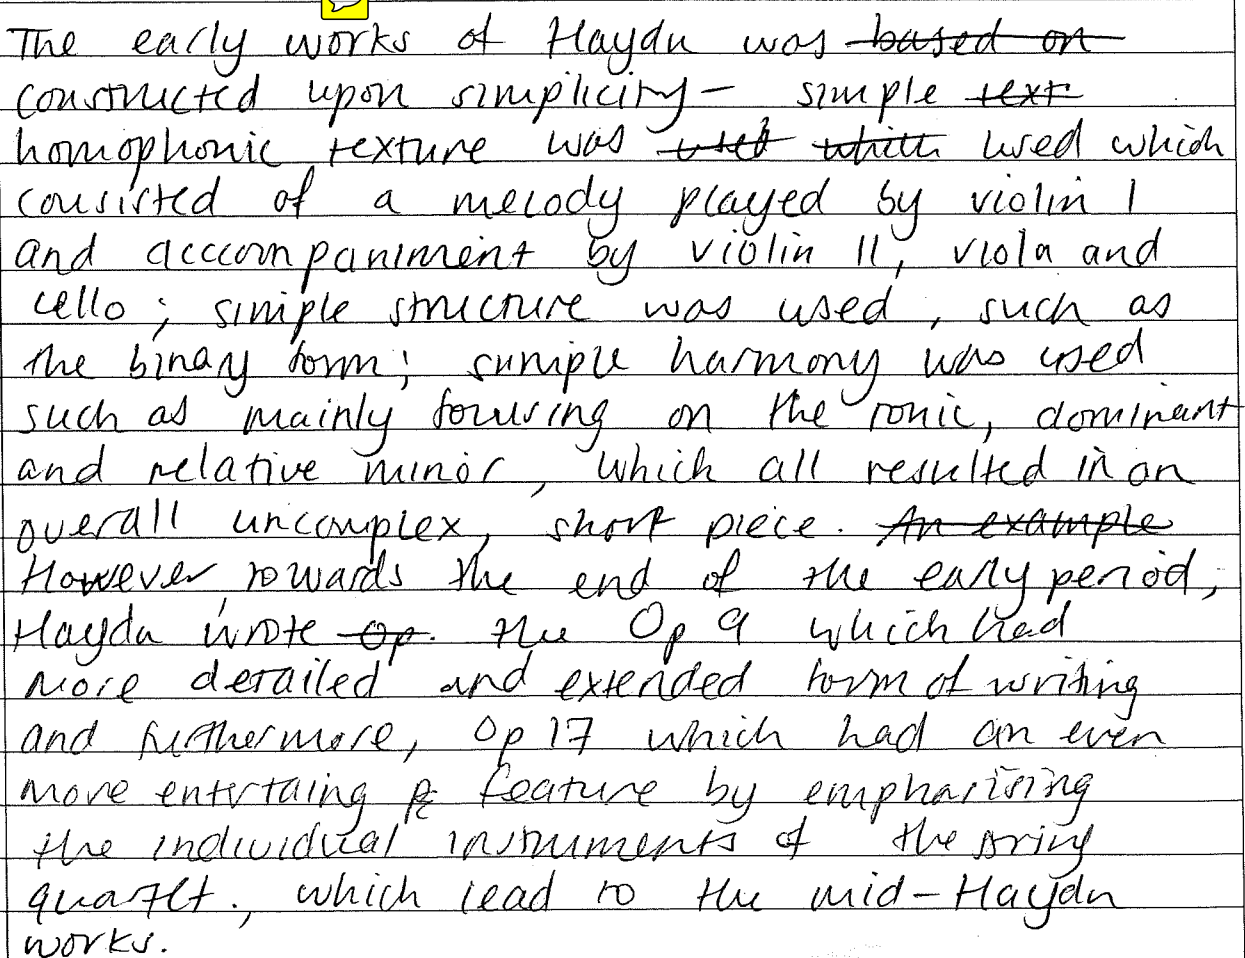 The early works of Haydn was based on
constructed upon simplicity – simple text
homophonic texture was used which used which
consisted of a melody played by violin I
and acccompaniment by violin II, viola and
cello ; simple structure was used , such as
the binary form; simple harmony was used
such as mainly focusing on the tonic, dominant
and relative minor, which all resulted in an
overall uncomplex, short piece. An example
However towards the end of the early period,
Haydn wrote Op. the Op 9 which had
more detailed and extended form of writing
and furthermore, Op 17 which had an even
more entertaing feature by emphasising
the individual instruments of the string
quartet., which lead to the mid-Haydn
works.